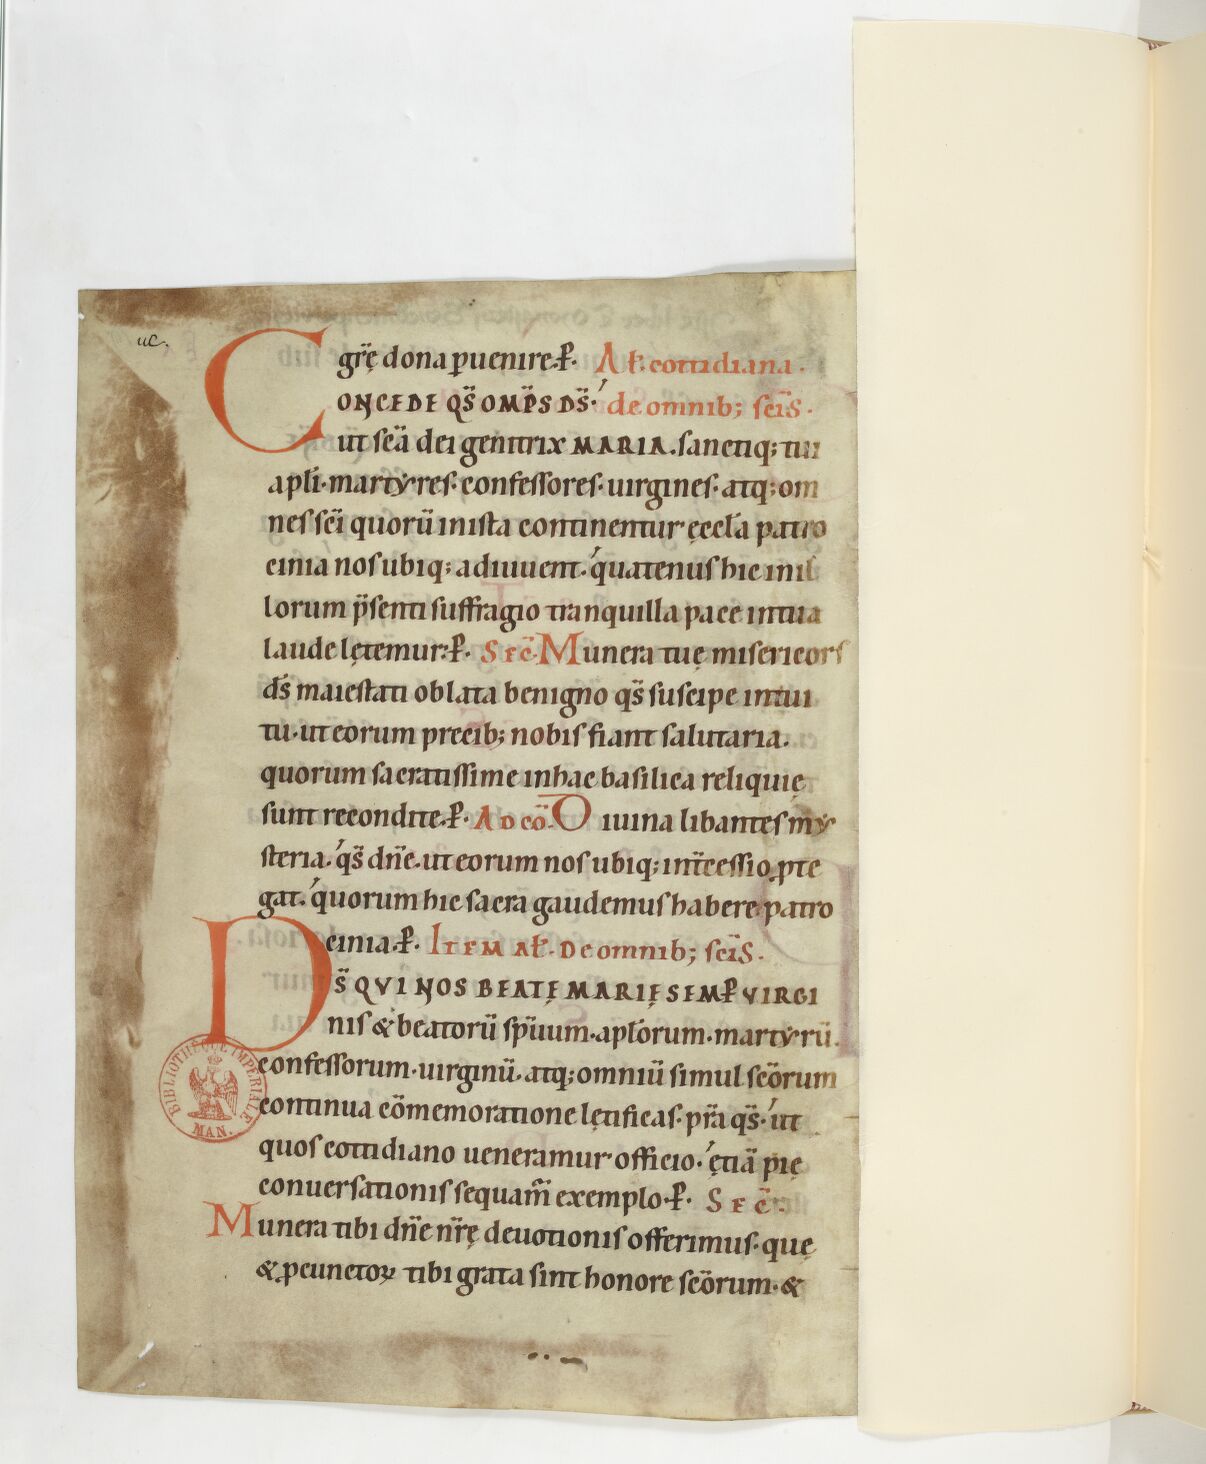 uc.
grę̃ dona ꝑuenire. P̶. Al̃. cottidiana.
CONCEDE QS̃ OMP̃S DS̃. de omnib; sc̃is.
ut sc̃a dei genitrix MARIA. sanctiq; tui
apl̃i. martyres. confessores. uirgines. atq; om
nes sc̃i quorũ in ista continentur ęccl̃a patro
cinia nos ubiq; adiuuent. quatenus hic in il
lorum p̃senti suffragio tranquilla pace in tua
laude lętemur. P̶. SEC̃. Munera tuę misericors
ds̃ maiestati oblata benigno qs̃ suscipe intui
tu. ut eorum precib; nobis fiant salutaria.
quorum sacratissime in hac basilica reliquię
sunt recondite. P̶. AD CO̅. Diuina libantes my
steria. qs̃ dñe. ut eorum nos ubiq; int̃cessio ꝓte
gat. quorum hic sacra gaudemus habere patro
cinia. P̶. ITEM Al̃. De omnib; sc̃is.
DS̃ QVI NOS BEATĘ MARIĘ SEMP̃ VIRGI
nis & beatorũ sp̃uum. apl̃orum. martyrũ.
confessorum. uirginũ. atq; omniũ simul sc̃orum
continua cõmemoratione lętificas. pr̃a qs̃. ut
quos cottidiano ueneramur officio. ętiã pię
conuersationis sequam̃ exemplo. P̶. SEC̃.
Munera tibi dñe nr̃ę deuotionis offerimus. quę
& ꝓ cunctoꝝ tibi grata sint honore sc̃orum. &
BIBLIOTHÈQUE IMPERIALE
MAN.